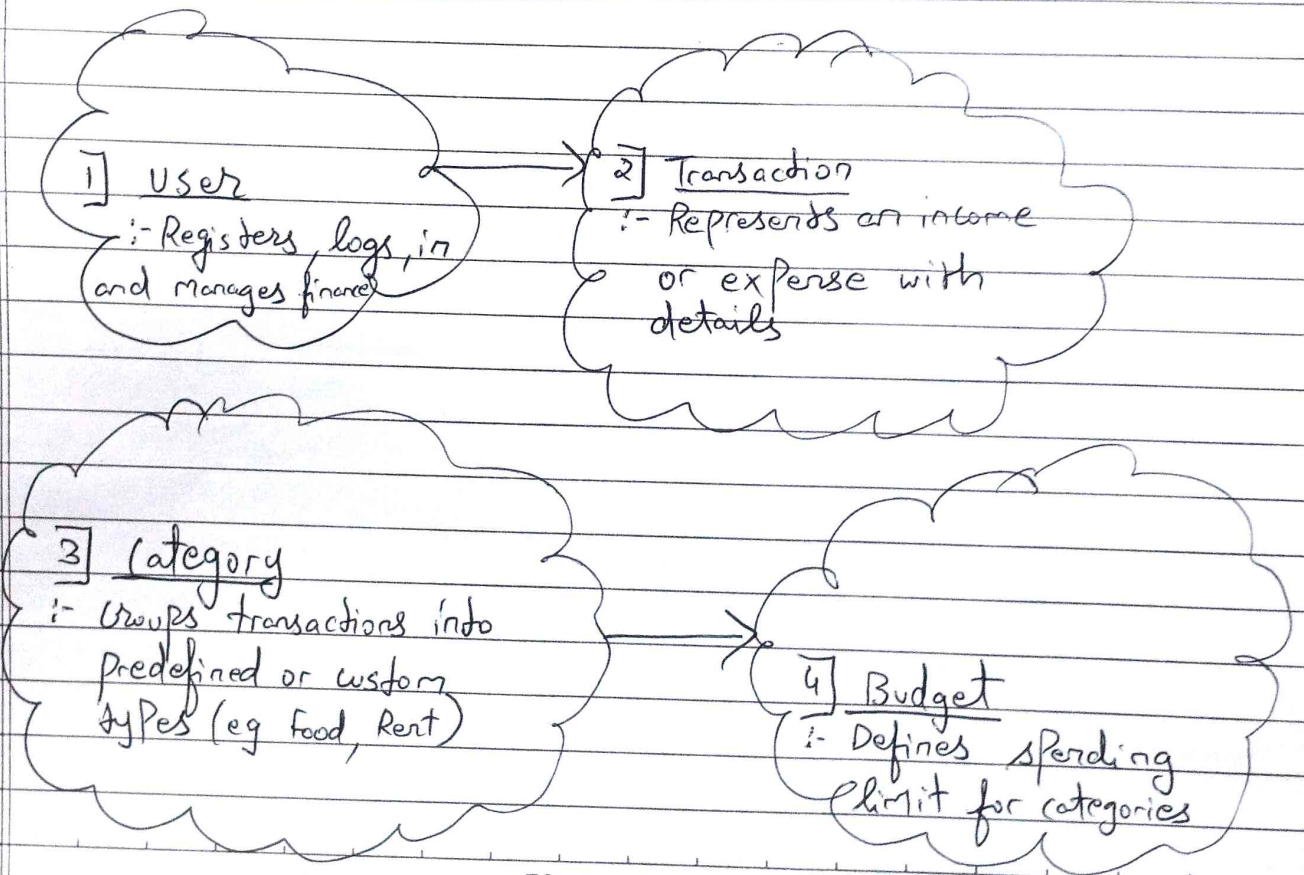 1] User
:- Registers, logs, in
and manages finance
2] Transaction
:- Represents an income
or expense with
details
3] Category
:- Groups transactions into
predefined or custom
types (eg Food, Rent)
4] Budget
:- Defines spending
limit for categories